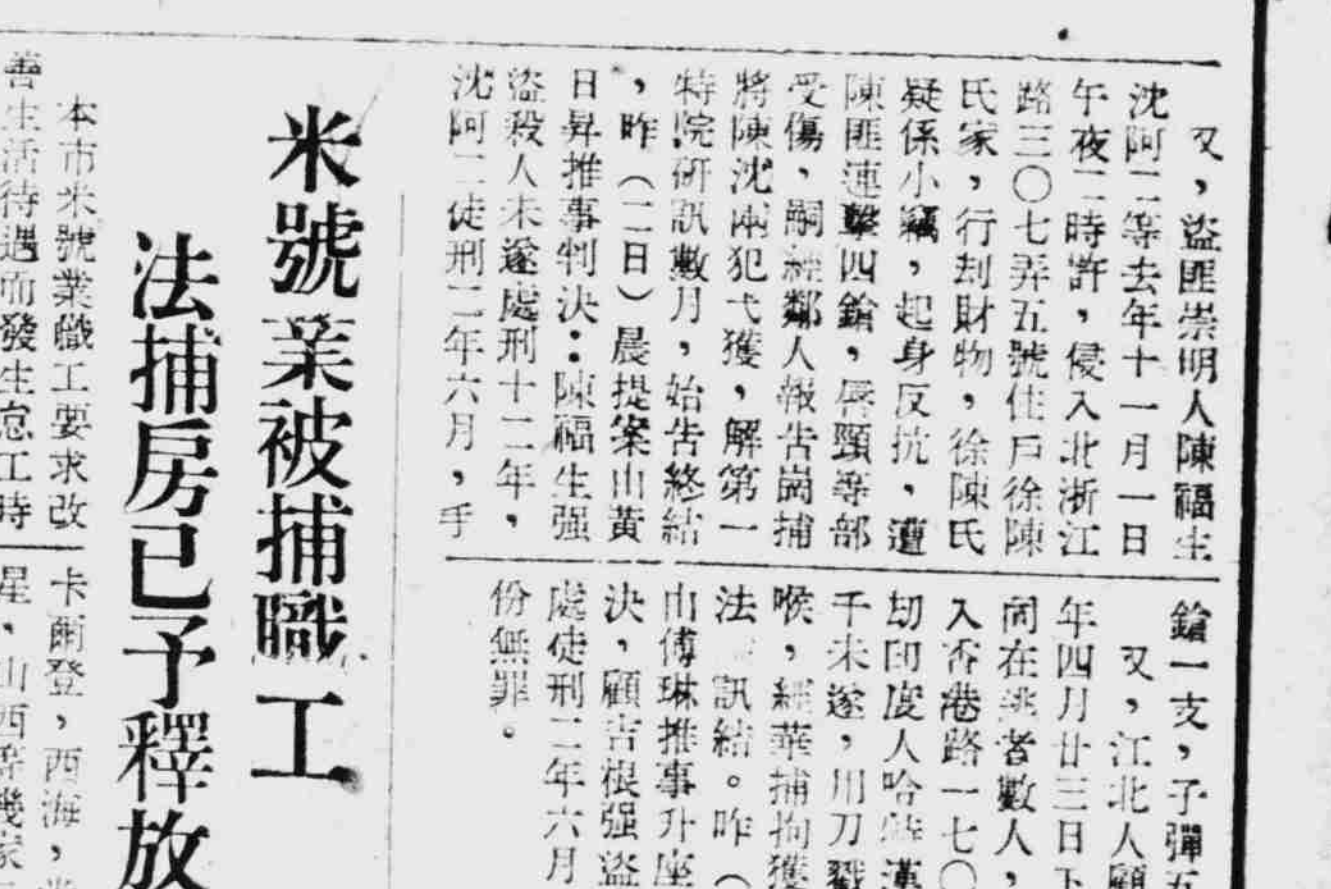 又，盜匪崇明人陳福生
沈阿二等去年十一月一日
午夜二時許，侵入北浙江
路三〇七弄五號住戶徐陳
氏家，行刦財物，徐陳氏
疑係小竊，起身反抗，遭
陳匪連擊四鎗，唇頸等部
受傷，嗣經鄰人報告崗捕
將陳沈兩犯弋獲，解第一
特院研訊數月，始告終結
，昨（二日）晨提案由黃
日昇推事判決：陳福生强
盜殺人未遂處刑十二年，
沈阿二徒刑二年六月，手
鎗一支，子彈五
又，江北人顧
年四月廿三日下
同在逃者數人，
入香港路一七〇
刧印度人哈 漢
千未遂，用刀戳
喉，經華捕拘獲
法 訊結。昨（
由傅琳推事升座
決，顧吉根强盜
處徒刑二年六月
份無罪。
米號業被捕職工
法捕房已予釋放
本市米號業職工要求改
善生活待遇而發生怠工時
卡爾登，西海，
星，山西 幾家